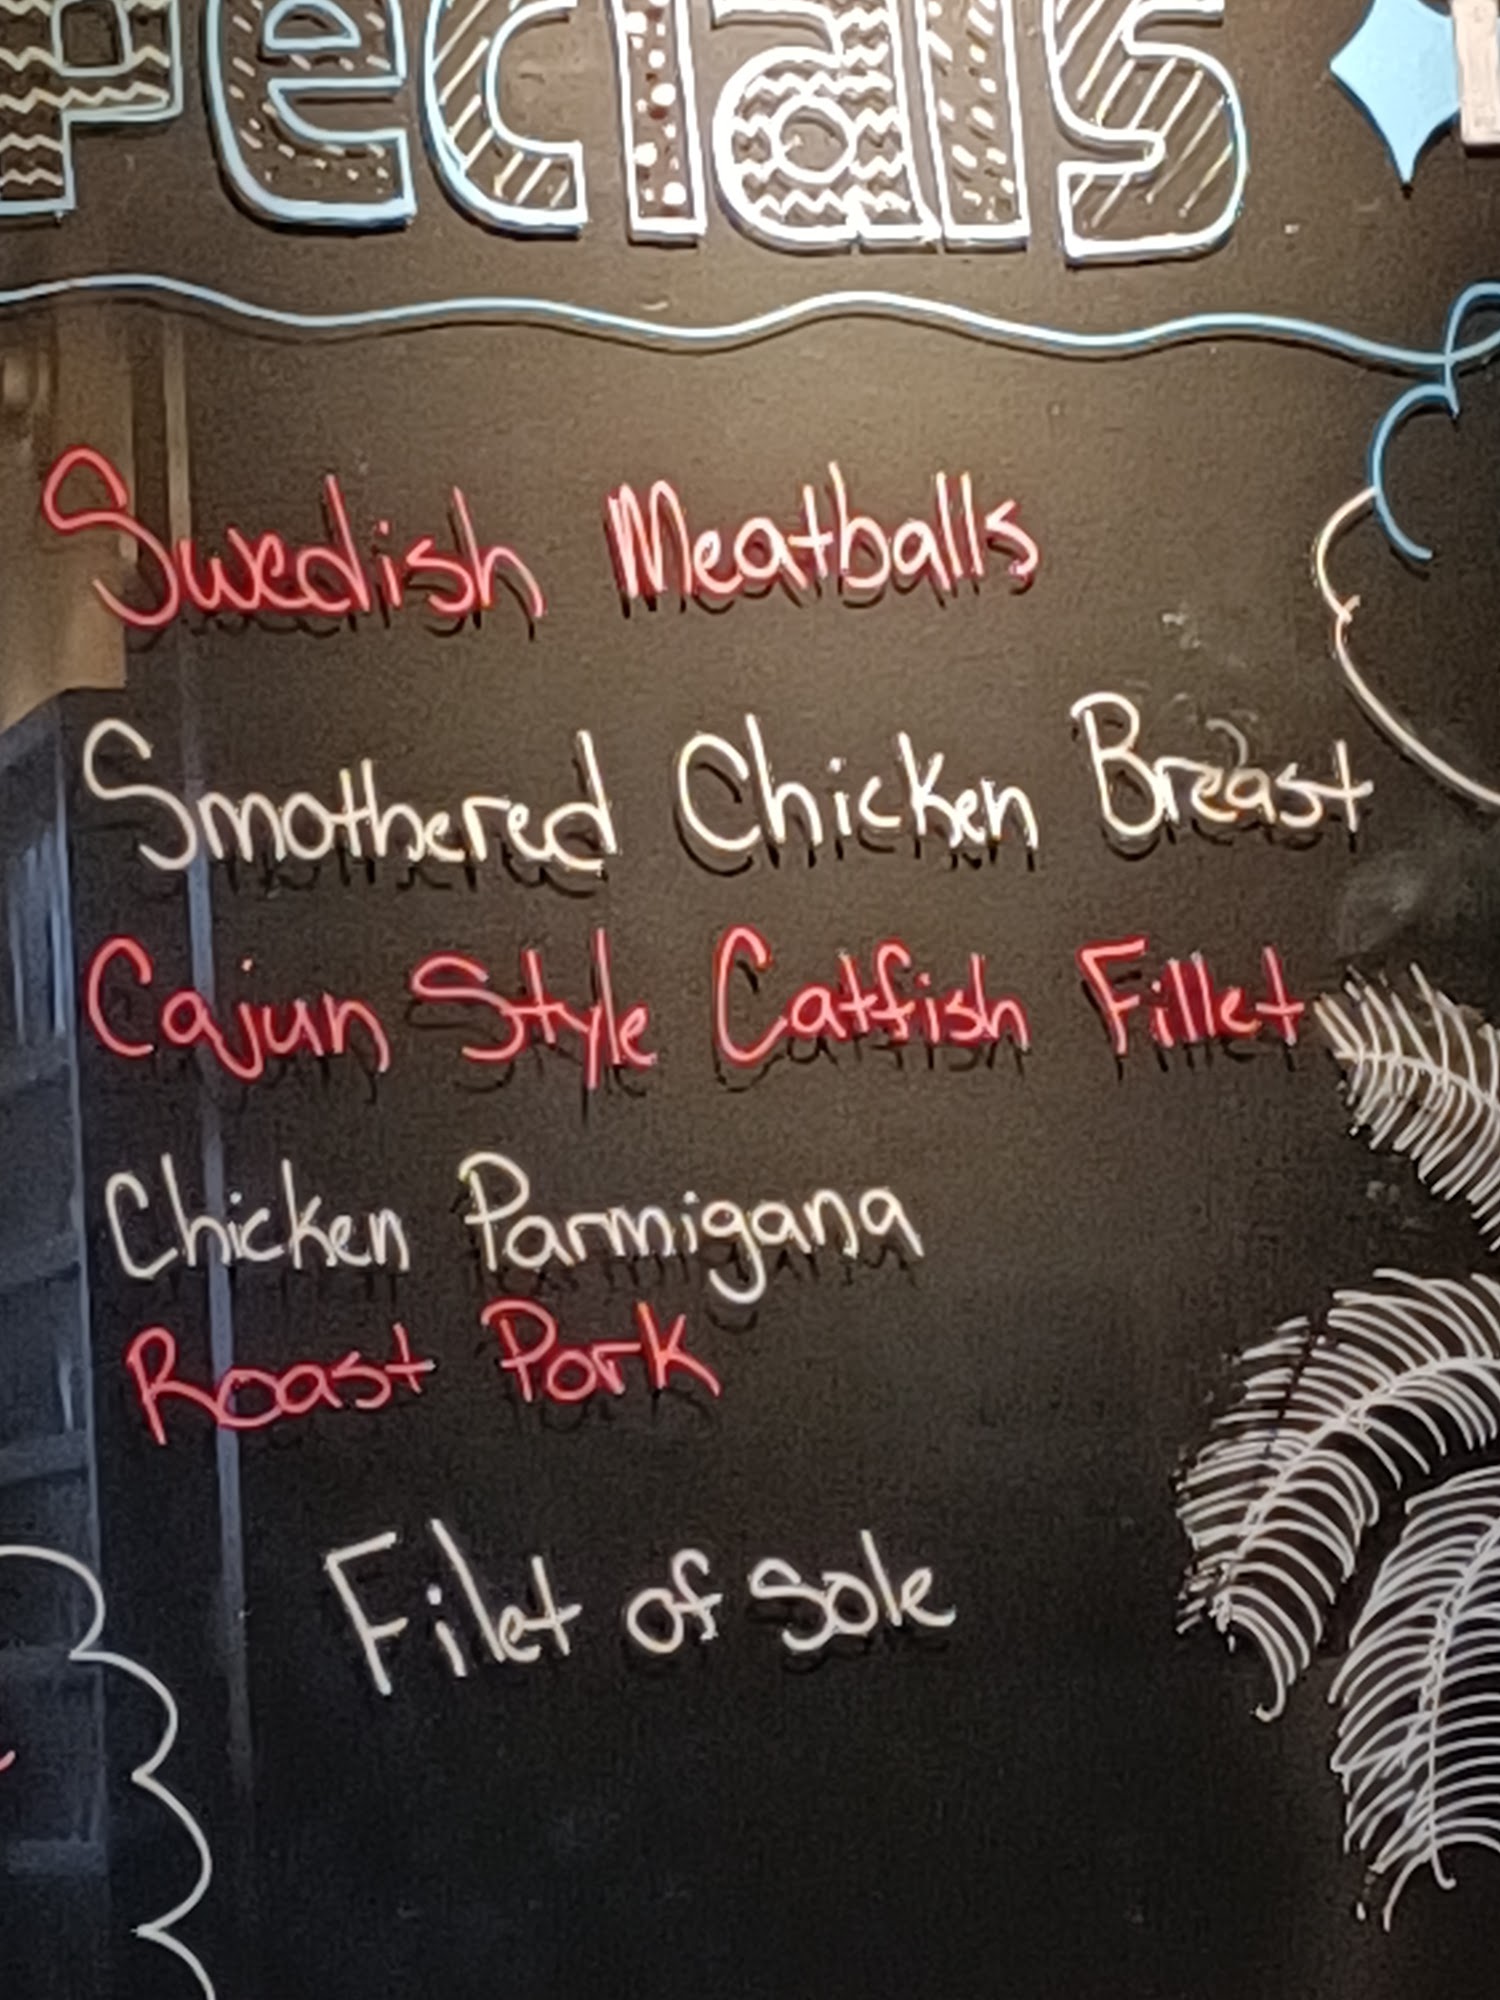 Specials
Swedish Meatballs
Smothered Chicken Breast
Cajun Style Catfish Fillet
Chicken Parmigana
Roast Pork
Filet of Sole